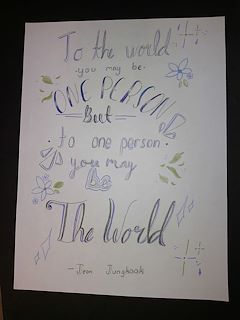 To the world
·you may be·
ONE PERSON
But
·to one person·
you may
be
The World
-Jeon Jungkook